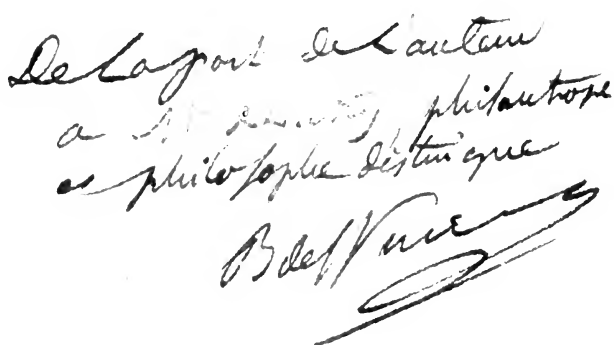 De la part de l'auteur
a philantrope
et philosophe distingué
B de St Vincent